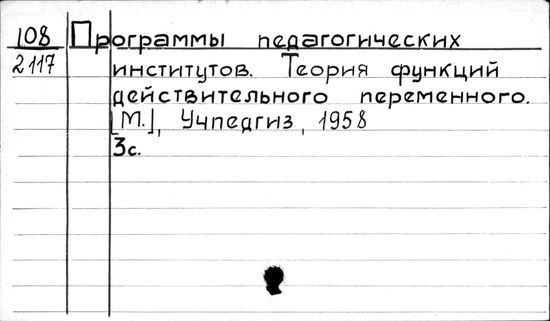 108 Программы педагогических
2117 институтов. Теория функций
действительного переменного.
[М.], Учпедгиз, 1958
3с.